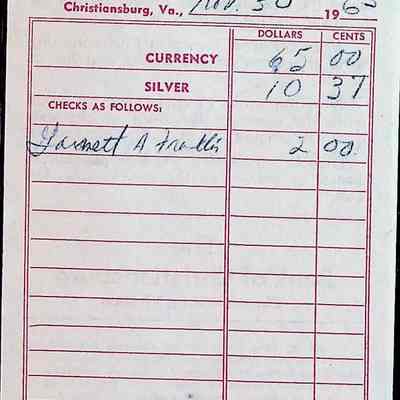 Christiansburg, Va., Nov. 30 1960
DOLLARS CENTS
CURRENCY 65 00
SILVER 10 37
CHECKS AS FOLLOWS:
Garnett A 2 00